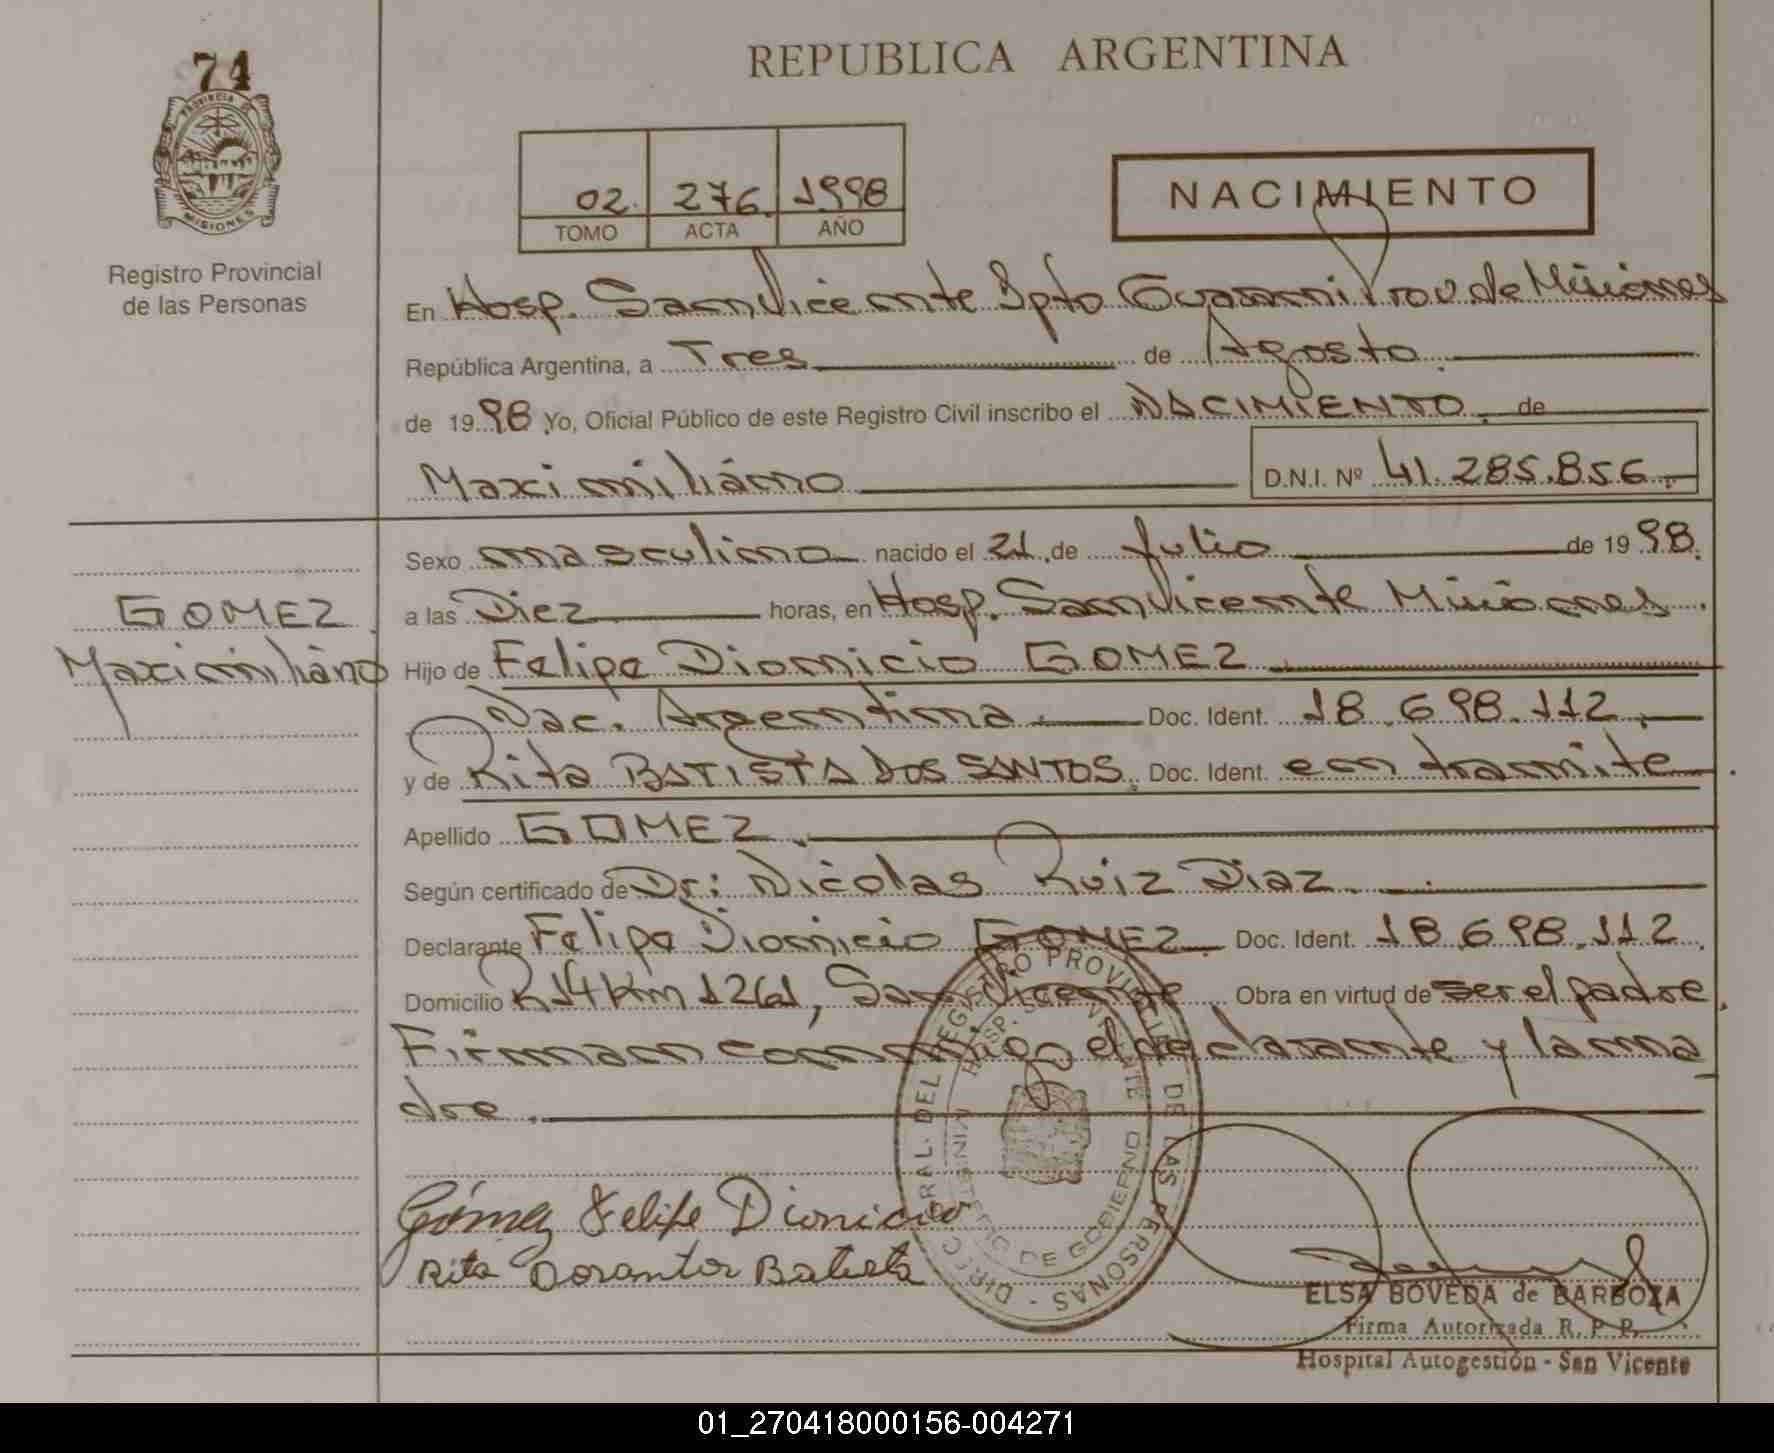 74
PROVINCIA DE
MISIONES
Registro Provincial
de las Personas
REPUBLICA ARGENTINA
02. 276. 1998
TOMO ACTA AÑO
NACIMIENTO
En Hosp. San Vicente Dpto Guarani Prov. de Misiones
República Argentina, a Tres de Agosto
de 1998 Yo, Oficial Público de este Registro Civil inscribo el NACIMIENTO de
Maximiliáno D.N.I. Nº 41.285.856.-
Sexo masculino nacido el 21 de Julio de 1998.
GOMEZ a las Diez horas, en Hosp. San Vicente Misiones.
Maximiliáno Hijo de Felipe Dionicio GOMEZ
Nac. Argentina. Doc. Ident. 18.698.112.
y de Rita BATISTA DOS SANTOS. Doc. Ident. en tramite.
Apellido GOMEZ.
Según certificado de Dr: Nicolas Ruiz Diaz.
Declarante Felipe Dionicio GOMEZ Doc. Ident. 18.698.112.
Domicilio R14 Km 1261, San Vicente Obra en virtud de ser el padre.
Firman conmigo el declarante y la ma
dre.
DIREC. GRAL. DEL REGISTRO PROVINCIAL DE LAS PERSONAS -
HOSP. SAN VICENTE
MINISTERIO DE GOBIERNO
Gómez Felipe Dionicio
Rita Dosantos Batista
ELSA BOVEDA de BARBOZA
Firma Autorizada R. P. P.
Hospital Autogestión - San Vicente
01_270418000156-004271